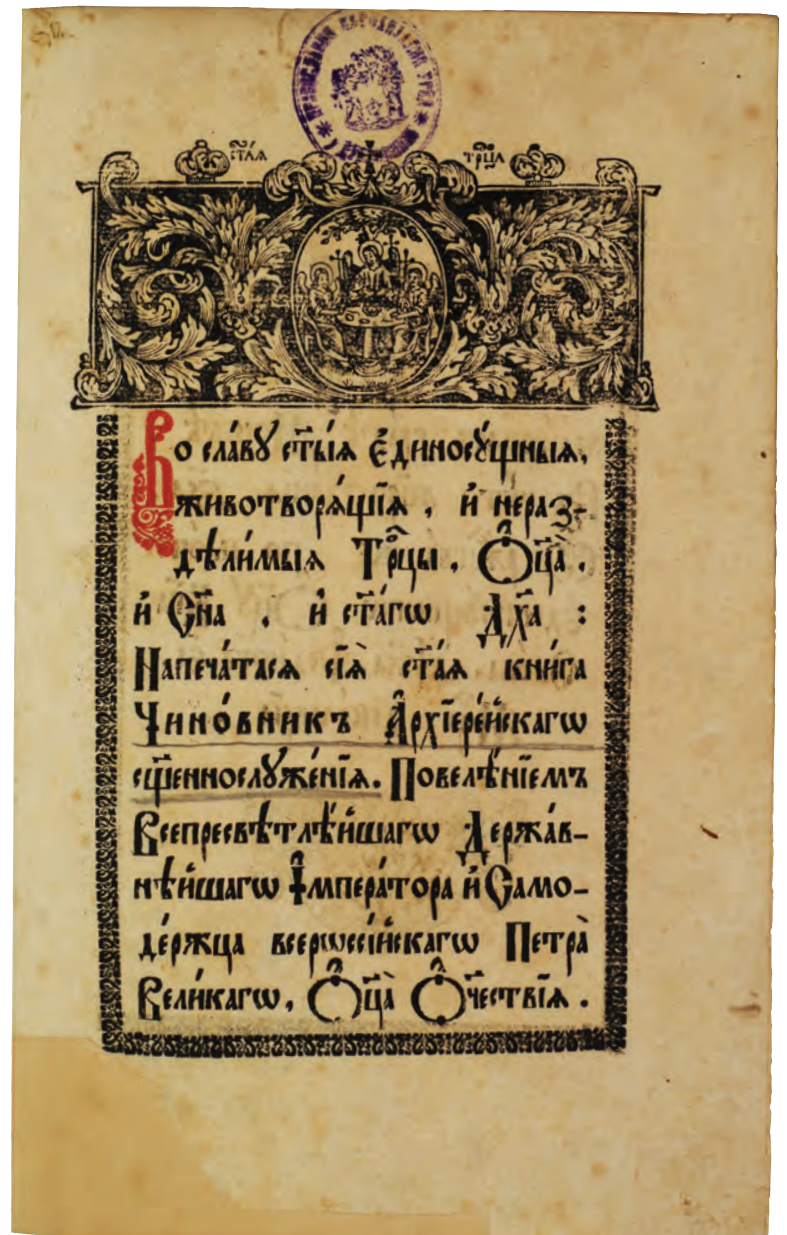 ст҃а́ѧ трⷪ҇ца
Во сла́вꙋ ст҃ы́ѧ є҆диносꙋ́щныѧ,
животворѧ́щїѧ, и҆ нераз-
дѣли́мыѧ Трⷪ҇цы, Ѻ҆ц҃а̀,
и҆ Сн҃а, и҆ ст҃а́гѡ Дх҃а :
Напеча́тасѧ сїѧ̀ ст҃а́ѧ кни́га
Чино́вникъ А҆рхїере́йскагѡ
сщ҃еннослꙋже́нїѧ. Повелѣ́нїемъ
Всепресвѣтлѣ́йшагѡ Держа́в-
нѣ́йшагѡ І҆мпера́тора и҆ Само-
де́ржца всерѡссі́йскагѡ Петра̀
Вели́кагѡ, Ѻ҆ц҃а̀ Ѻ҆ч҃ествїѧ.